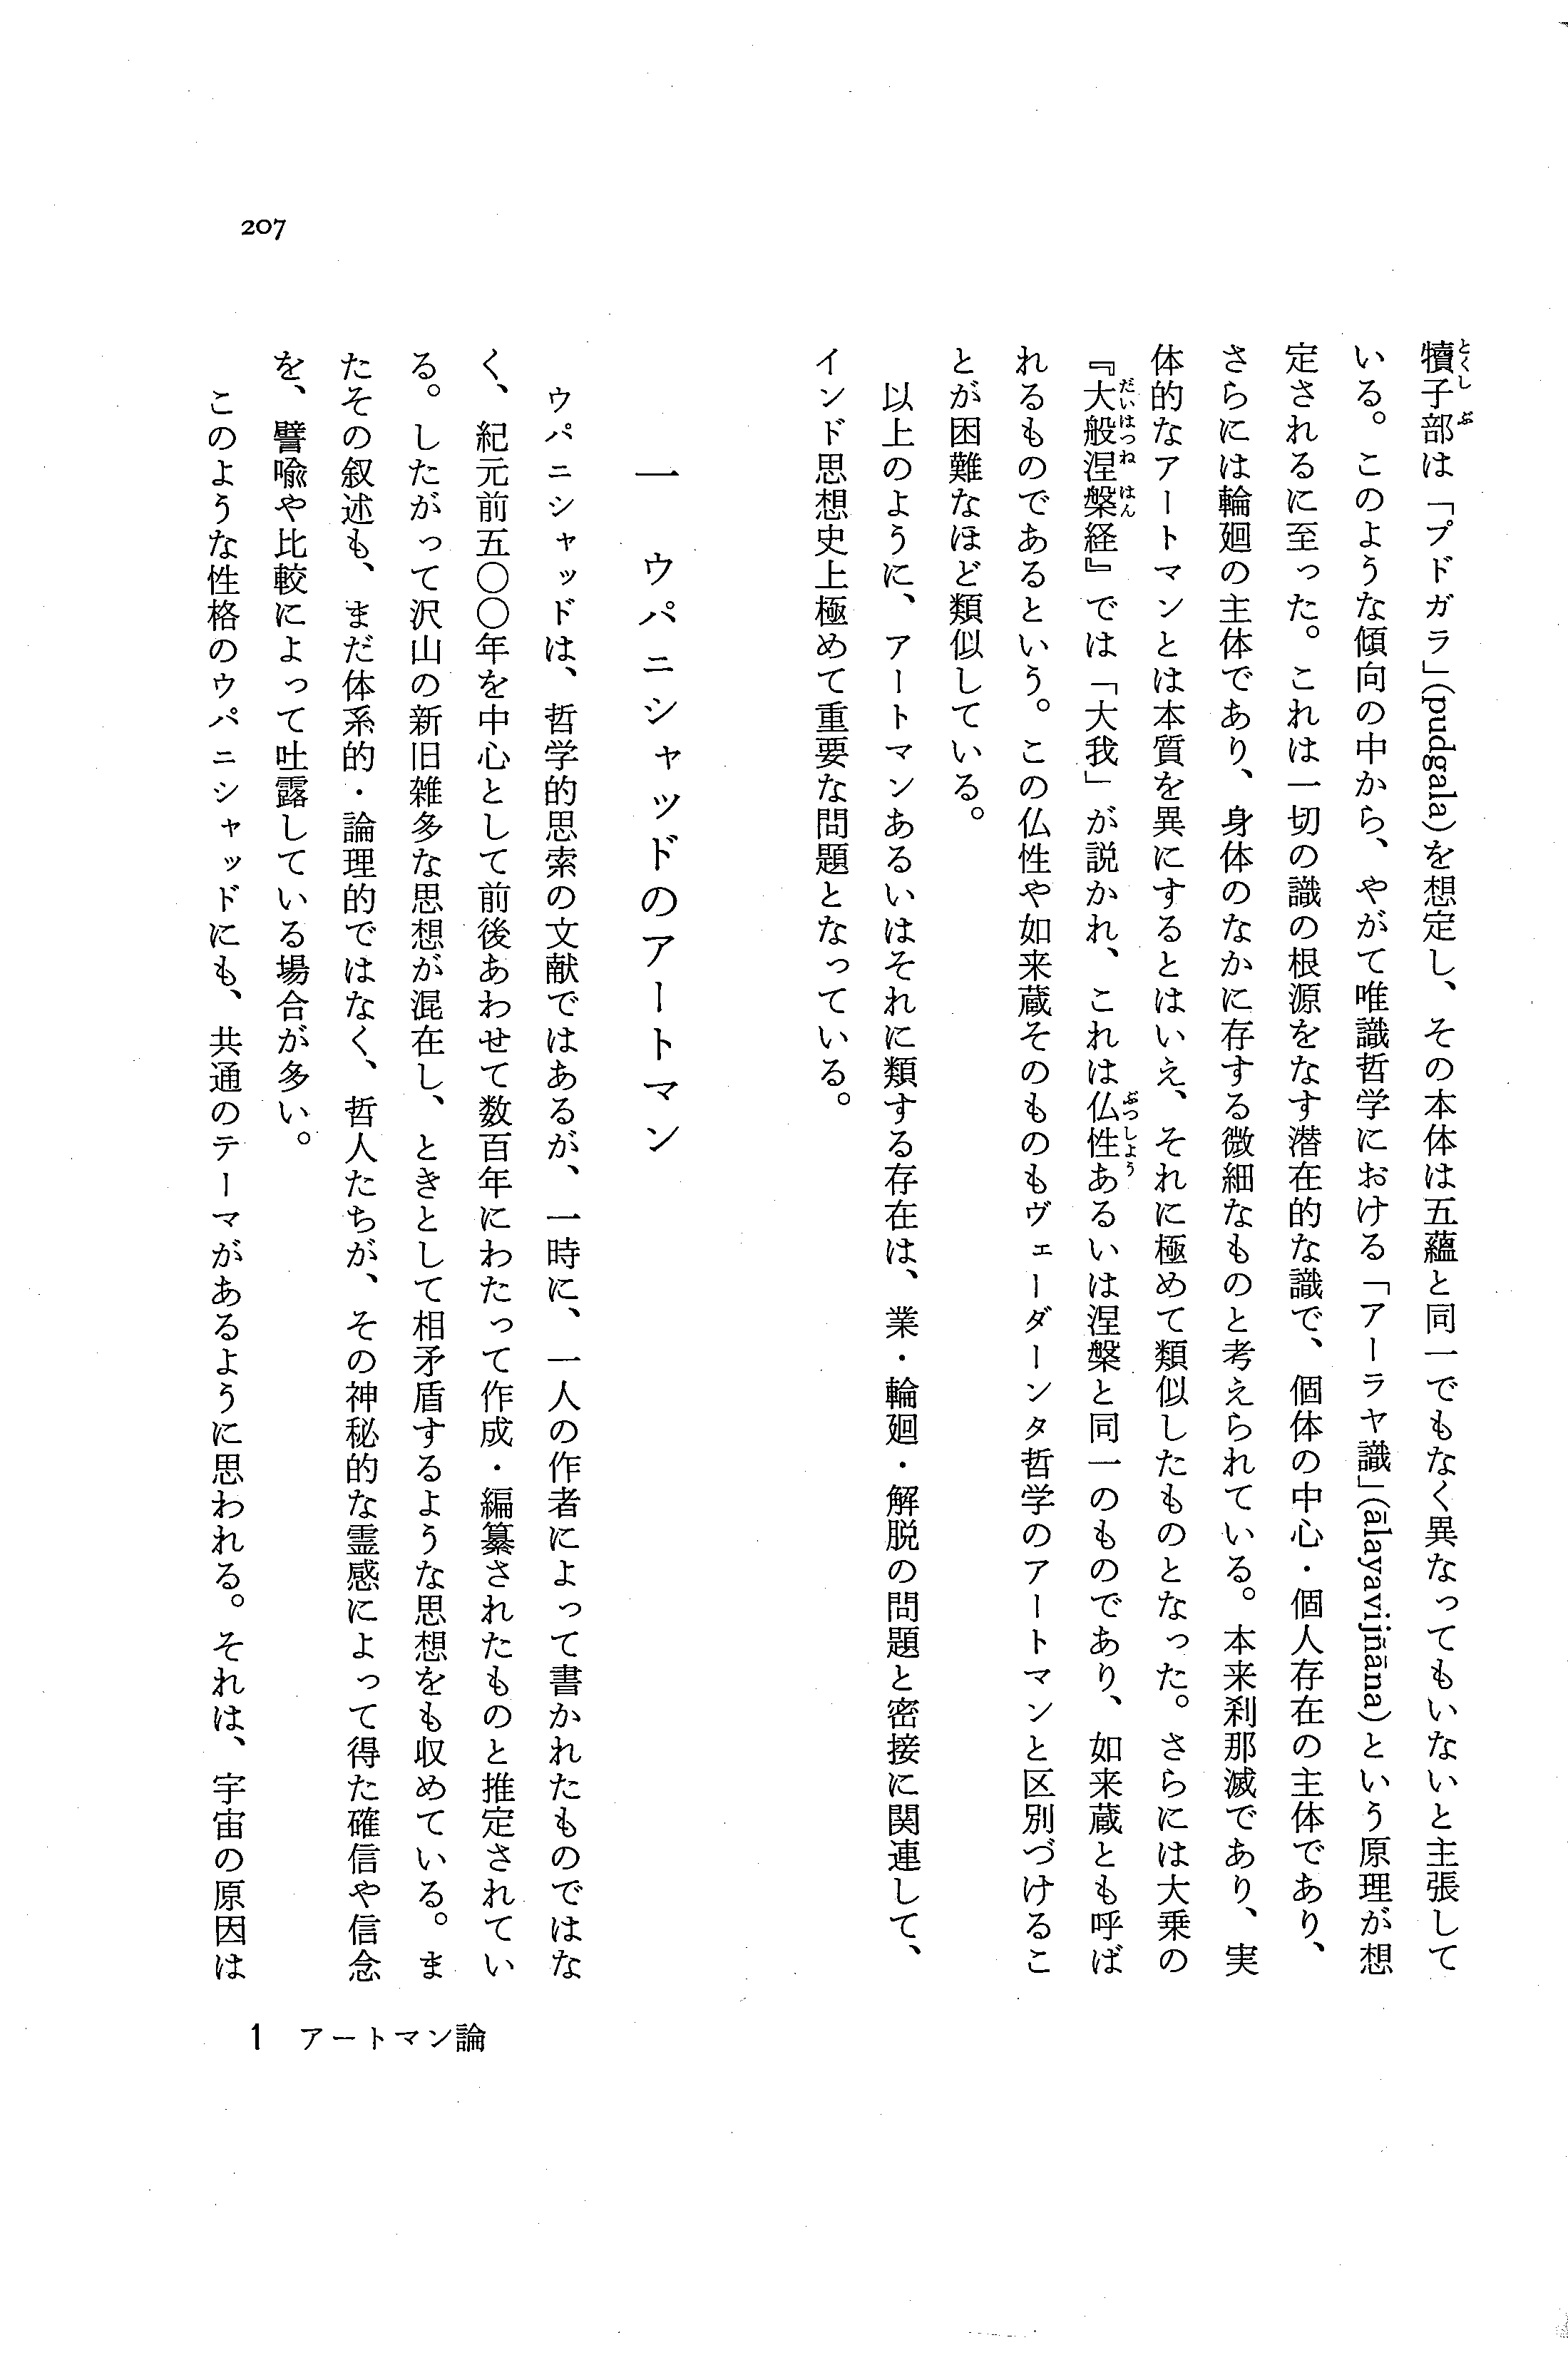 犢子部は「プドガラ」(pudgala)を想定し、その本体は五蘊と同一でもなく異なってもいないと主張して
いる。このような傾向の中から、やがて唯識哲学における「アーラヤ識」(ālayavijñāna)という原理が想
定されるに至った。これは一切の識の根源をなす潜在的な識で、個体の中心・個人存在の主体であり、
さらには輪廻の主体であり、身体のなかに存する微細なものと考えられている。本来刹那滅であり、実
体的なアートマンとは本質を異にするとはいえ、それに極めて類似したものとなった。さらには大乗の
『大般涅槃経』では「大我」が説かれ、これは仏性あるいは涅槃と同一のものであり、如来蔵とも呼ば
れるものであるという。この仏性や如来蔵そのものもヴェーダーンタ哲学のアートマンと区別づけるこ
とが困難なほど類似している。
以上のように、アートマンあるいはそれに類する存在は、業・輪廻・解脱の問題と密接に関連して、
インド思想史上極めて重要な問題となっている。
一 ウパニシャッドのアートマン
ウパニシャッドは、哲学的思索の文献ではあるが、一時に、一人の作者によって書かれたものではな
く、紀元前五〇〇年を中心として前後あわせて数百年にわたって作成・編纂されたものと推定されてい
る。したがって沢山の新旧雑多な思想が混在し、ときとして相矛盾するような思想をも収めている。ま
たその叙述も、まだ体系的・論理的ではなく、哲人たちが、その神秘的な霊感によって得た確信や信念
を、譬喩や比較によって吐露している場合が多い。
このような性格のウパニシャッドにも、共通のテーマがあるように思われる。それは、宇宙の原因は
207
1 アートマン論
とくしぶ
だいはつねはん
ぶつしよう